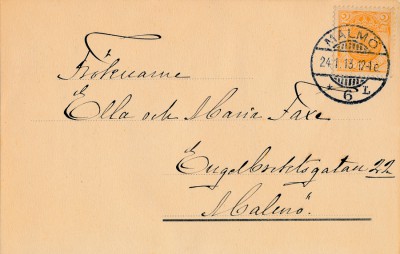 MALMÖ
24.1.13.12-1E
* 6 L
Frökname
Ella och Maria Faxe
Engelbrektsgatan 22
Malmö.